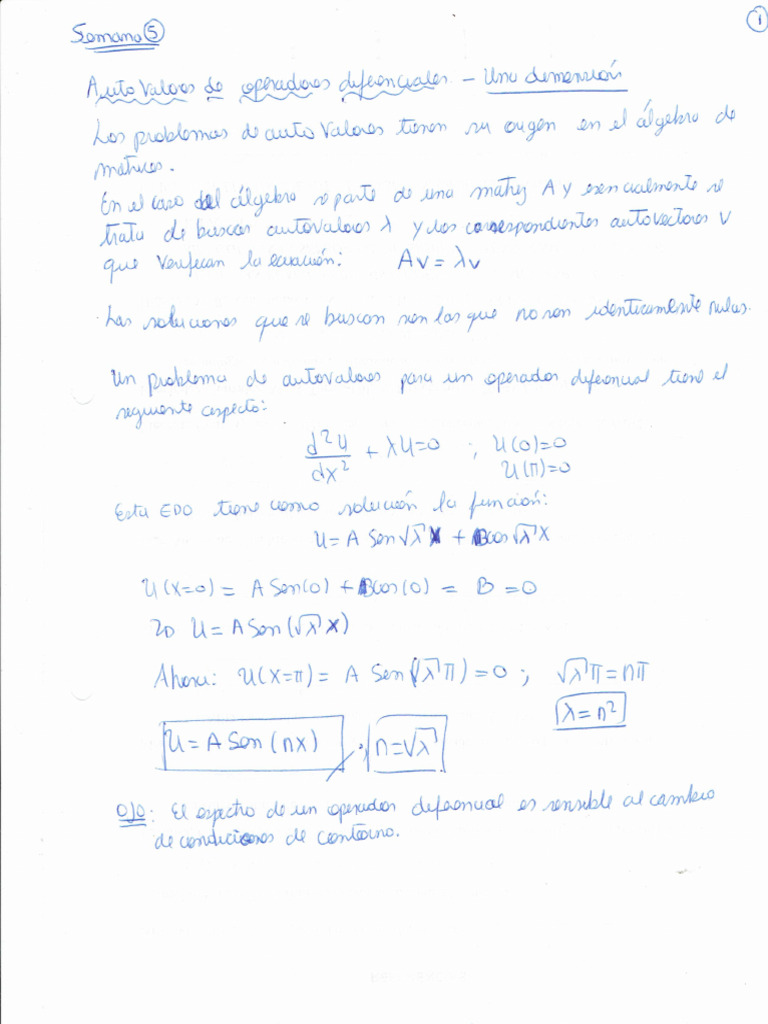 1
Semana 5
Autovalores de operadores diferenciales - Una dimensión
Los problemas de autovalores tienen su origen en el álgebra de
matrices.
En el caso del álgebra se parte de una matriz A y esencialmente se
trata de buscar autovalores λ y los correspondientes autovectores v
que verifican la ecuación: Av = λv
Las soluciones que se buscan son las que no son identicamente nulas.
Un problema de autovalores para un operador diferencial tiene el
siguiente aspecto:
d²u/dx² + λu=0 ; u(0)=0
u(π)=0
Esta EDO tiene como solución la función:
u = A Sen√λ x + B cos√λ x
u(x=0) = A Sen(0) + B cos(0) = B = 0
⇒ u = A Sen(√λ x)
Ahora: u(x=π) = A Sen(√λ π) = 0 ; √λ π = nπ
λ = n²
u = A Sen(nx) ; n=√λ
OJO: El espectro de un operador diferencial es sensible al cambio
de condiciones de contorno.